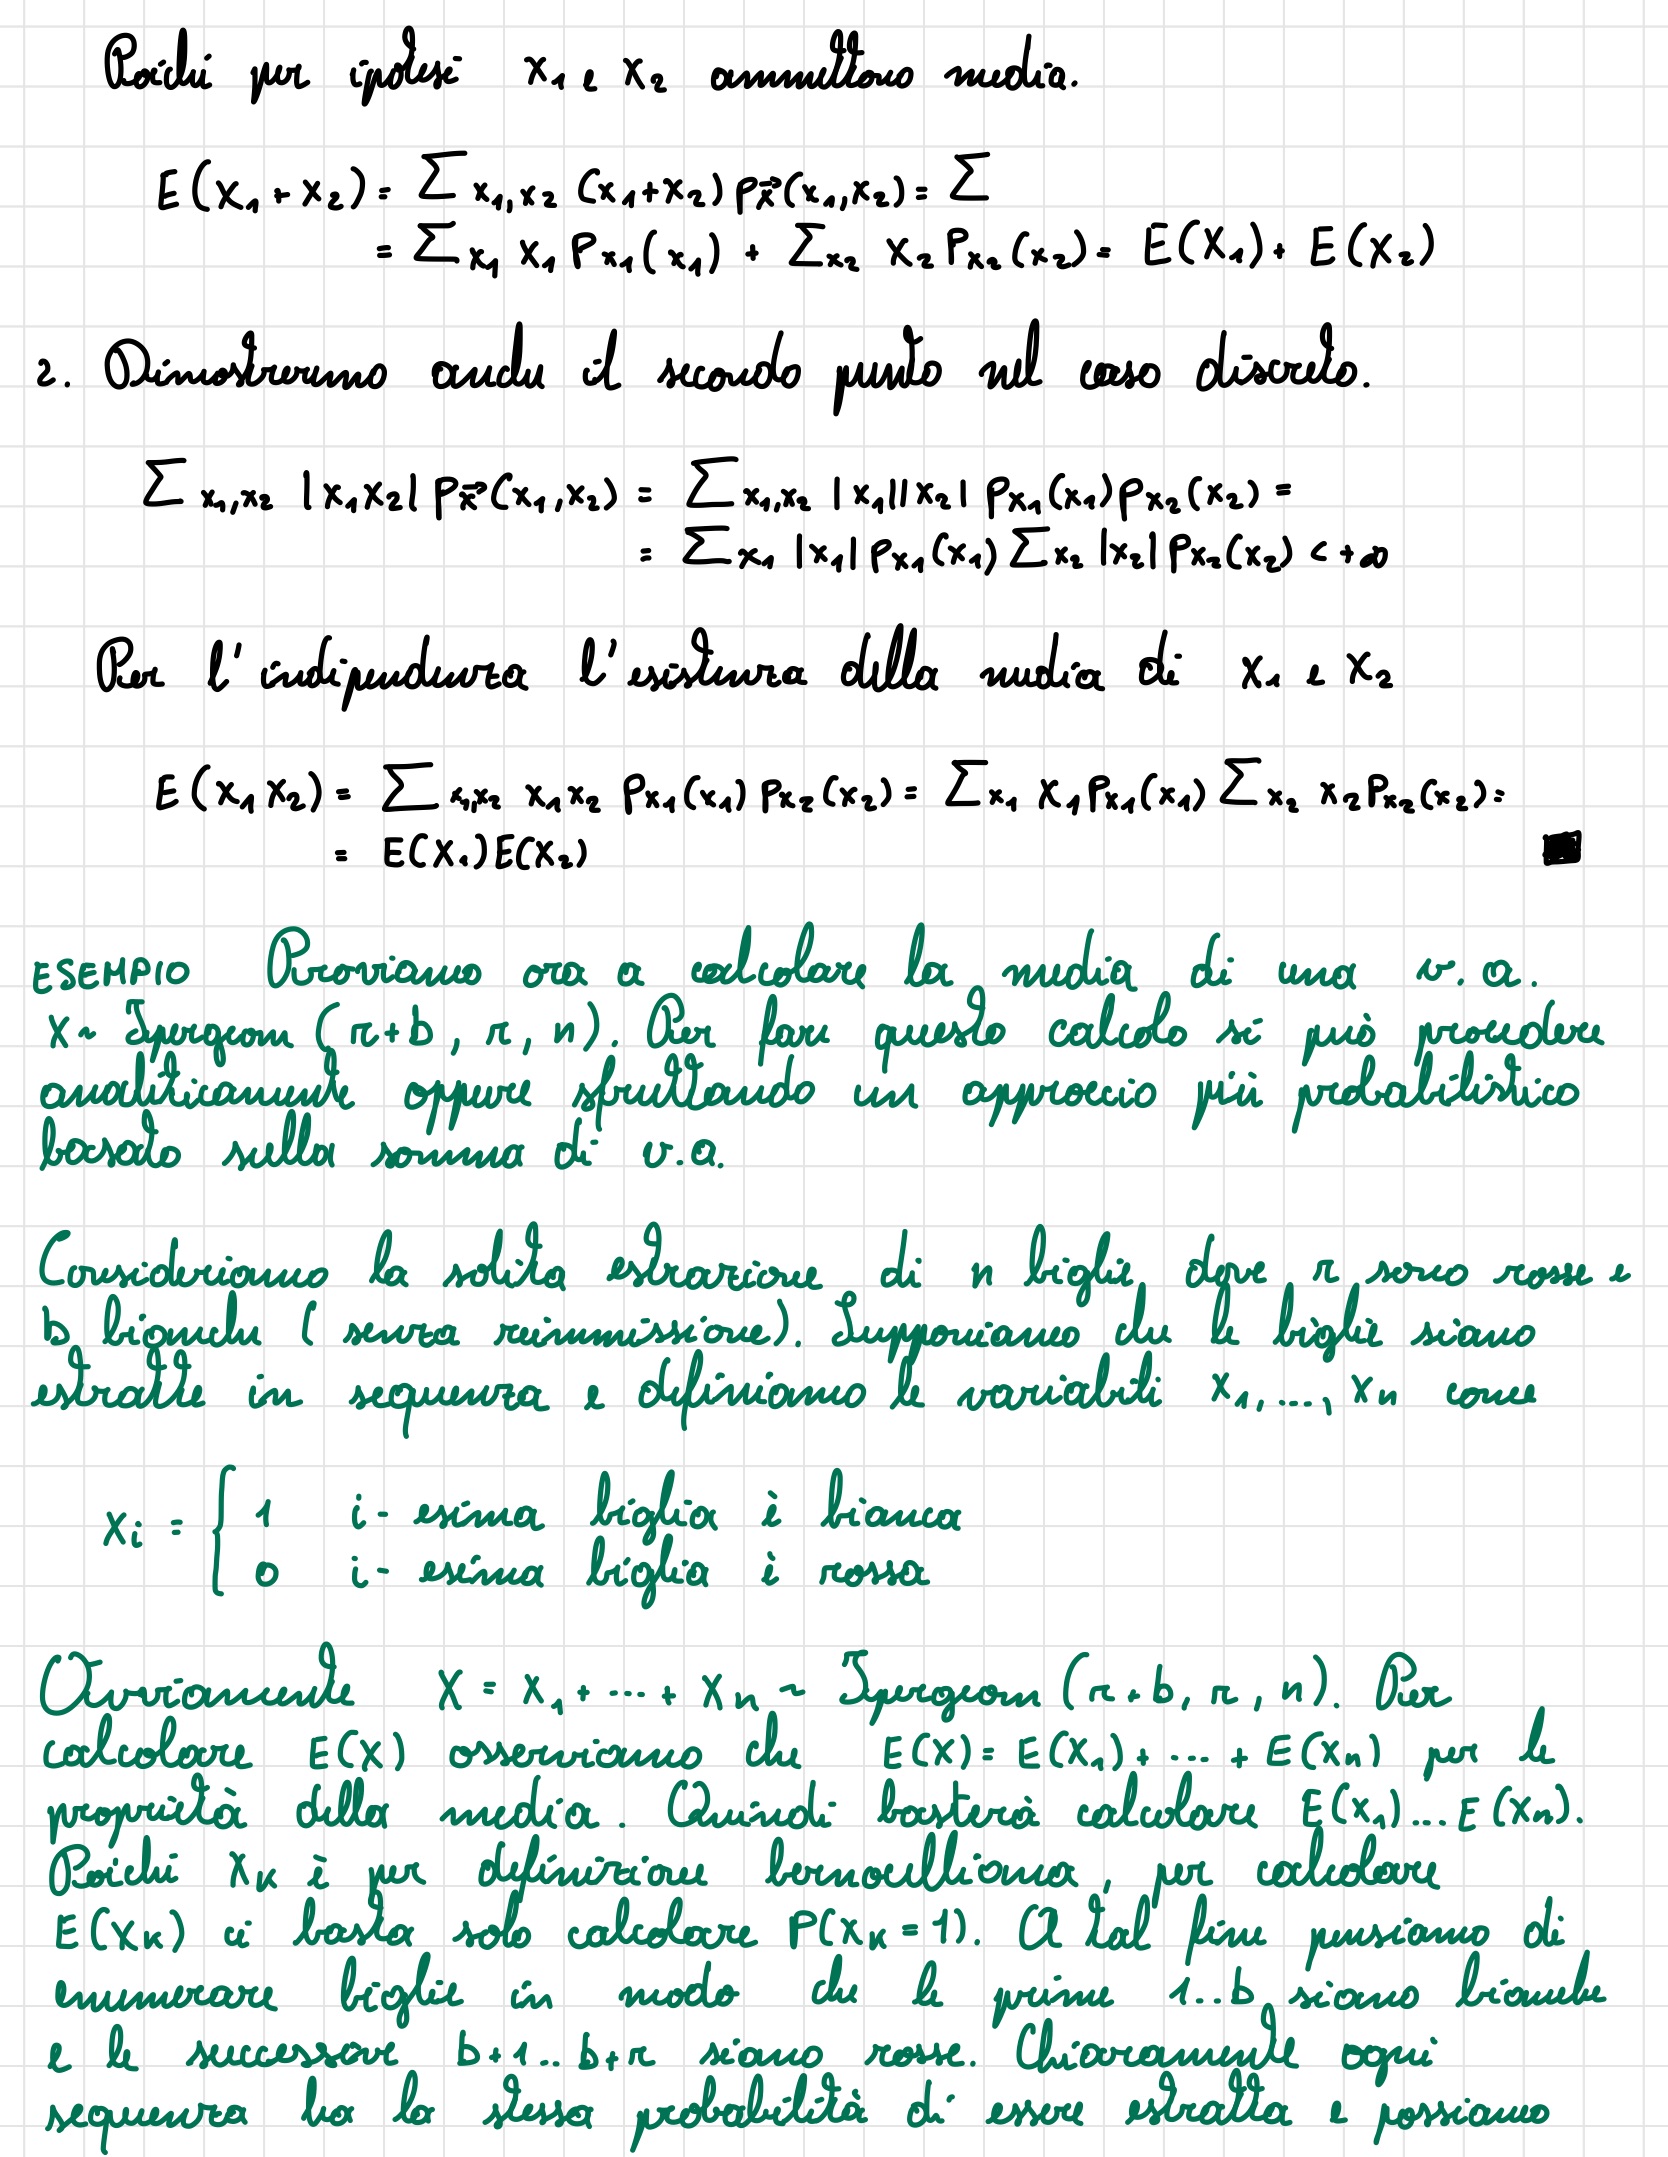 Poichè per ipotesi X₁ e X₂ ammettono media.
E(X₁+X₂) = ∑ x₁,x₂ (x₁+x₂) p_x⃗(x₁,x₂) = ∑
= ∑x₁ x₁ p_x₁(x₁) + ∑x₂ x₂ p_x₂(x₂) = E(X₁) + E(X₂)
2. Dimostreremo anche il secondo punto nel caso discreto.
∑ x₁,x₂ |x₁x₂| p_x⃗(x₁,x₂) = ∑ x₁,x₂ |x₁||x₂| p_x₁(x₁) p_x₂(x₂) =
= ∑x₁ |x₁| p_x₁(x₁) ∑x₂ |x₂| p_x₂(x₂) < +∞
Per l'indipendenza l'esistenza della media di X₁ e X₂
E(X₁X₂) = ∑ x₁,x₂ x₁x₂ p_x₁(x₁) p_x₂(x₂) = ∑x₁ x₁ p_x₁(x₁) ∑x₂ x₂ p_x₂(x₂) =
= E(X₁)E(X₂)
ESEMPIO Proviamo ora a calcolare la media di una v.a.
X ~ Ipergeom (r+b, r, n). Per fare questo calcolo si può procedere
analiticamente oppure sfruttando un approccio più probabilistico
basato sulla somma di v.a.
Consideriamo la solita estrazione di n biglie dove r sono rosse e
b bianche (senza reimmissione). Supponiamo che le biglie siano
estratte in sequenza e definiamo le variabili X₁, ..., Xn come
Xi = { 1 i-esima biglia è bianca
0 i-esima biglia è rossa
Ovviamente X = X₁ + ... + Xn ~ Ipergeom (r+b, r, n). Per
calcolare E(X) osserviamo che E(X) = E(X₁) + ... + E(Xn) per le
proprietà della media. Quindi basterà calcolare E(X₁)...E(Xn).
Poichè Xk è per definizione bernoulliana, per calcolare
E(Xk) ci basta solo calcolare P(Xk = 1). A tal fine pensiamo di
enumerare biglie in modo che le prime 1..b siano bianche
e le successive b+1..b+r siano rosse. Chiaramente ogni
sequenza ha la stessa probabilità di essere estratta e possiamo